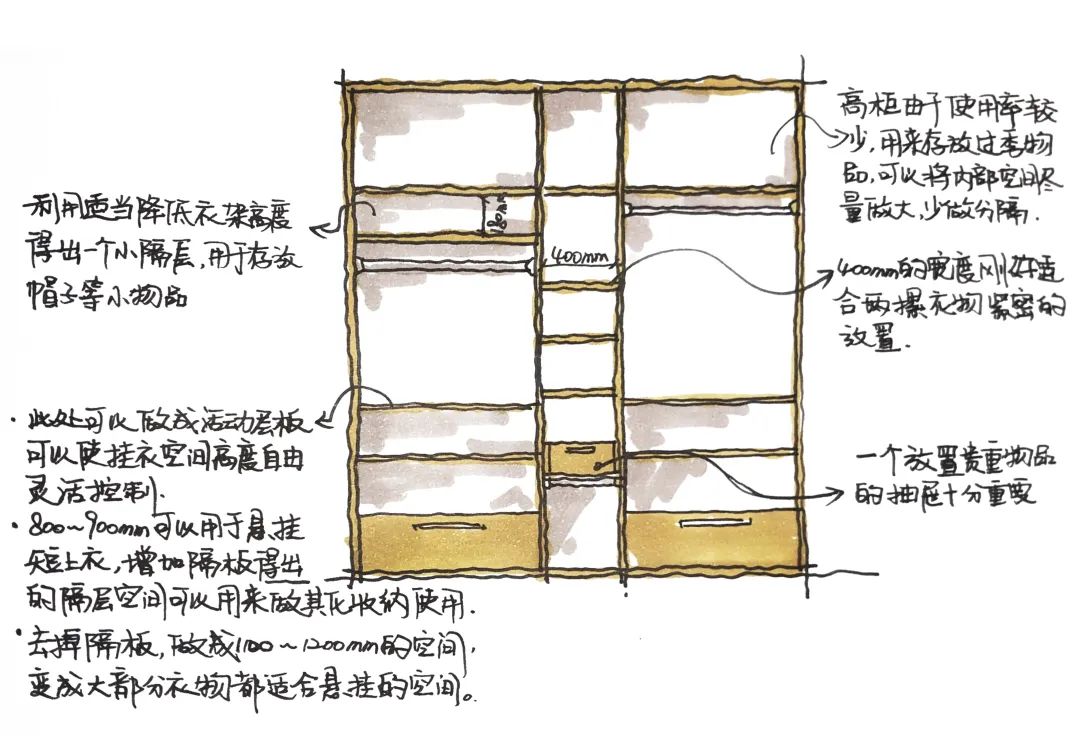 利用适当降低衣架高度
得出一个小隔层,用于存放
帽子等小物品
· 此处可以做成活动层板
可以使挂衣空间高度自由
灵活控制.
· 800~900mm可以用于悬挂
短上衣,增加隔板得出
的隔层空间可以用来做其它收纳使用.
· 去掉隔板,做成1100~1200mm的空间,
变成大部分衣物都适合悬挂的空间。
180mm
400mm
高柜由于使用率较
少,用来存放过季物
品,可以将内部空间尽
量放大,少做分隔.
400mm的宽度刚好适
合两摞衣物紧密的
放置.
一个放置贵重物品
的抽屉十分重要